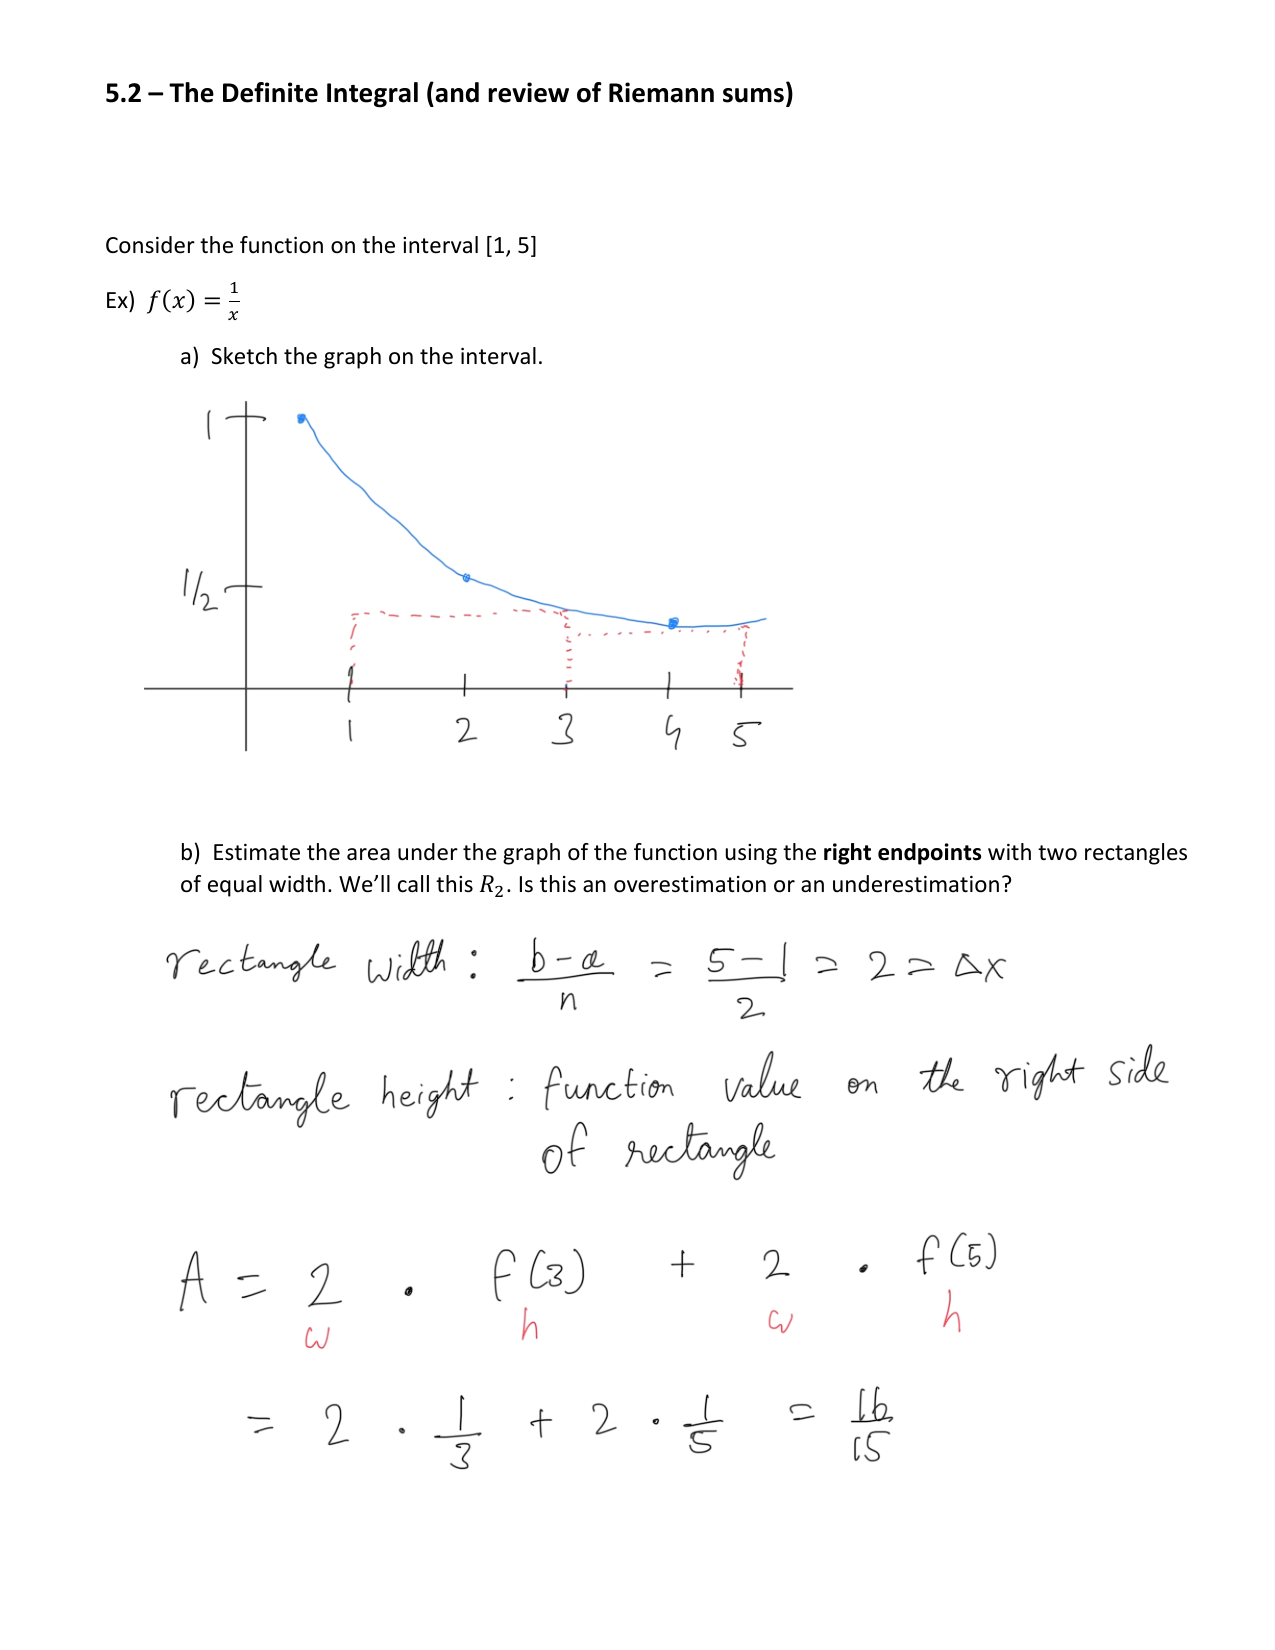 5.2 – The Definite Integral (and review of Riemann sums)
Consider the function on the interval [1, 5]
Ex) f(x) = 1/x
a) Sketch the graph on the interval.
1
1/2
1 2 3 4 5
b) Estimate the area under the graph of the function using the right endpoints with two rectangles
of equal width. We’ll call this R₂. Is this an overestimation or an underestimation?
rectangle width : (b-a)/n = (5-1)/2 = 2 = Δx
rectangle height : function value on the right side
of rectangle
A = 2 · f(3) + 2 · f(5)
w h w h
= 2 · 1/3 + 2 · 1/5 = 16/15